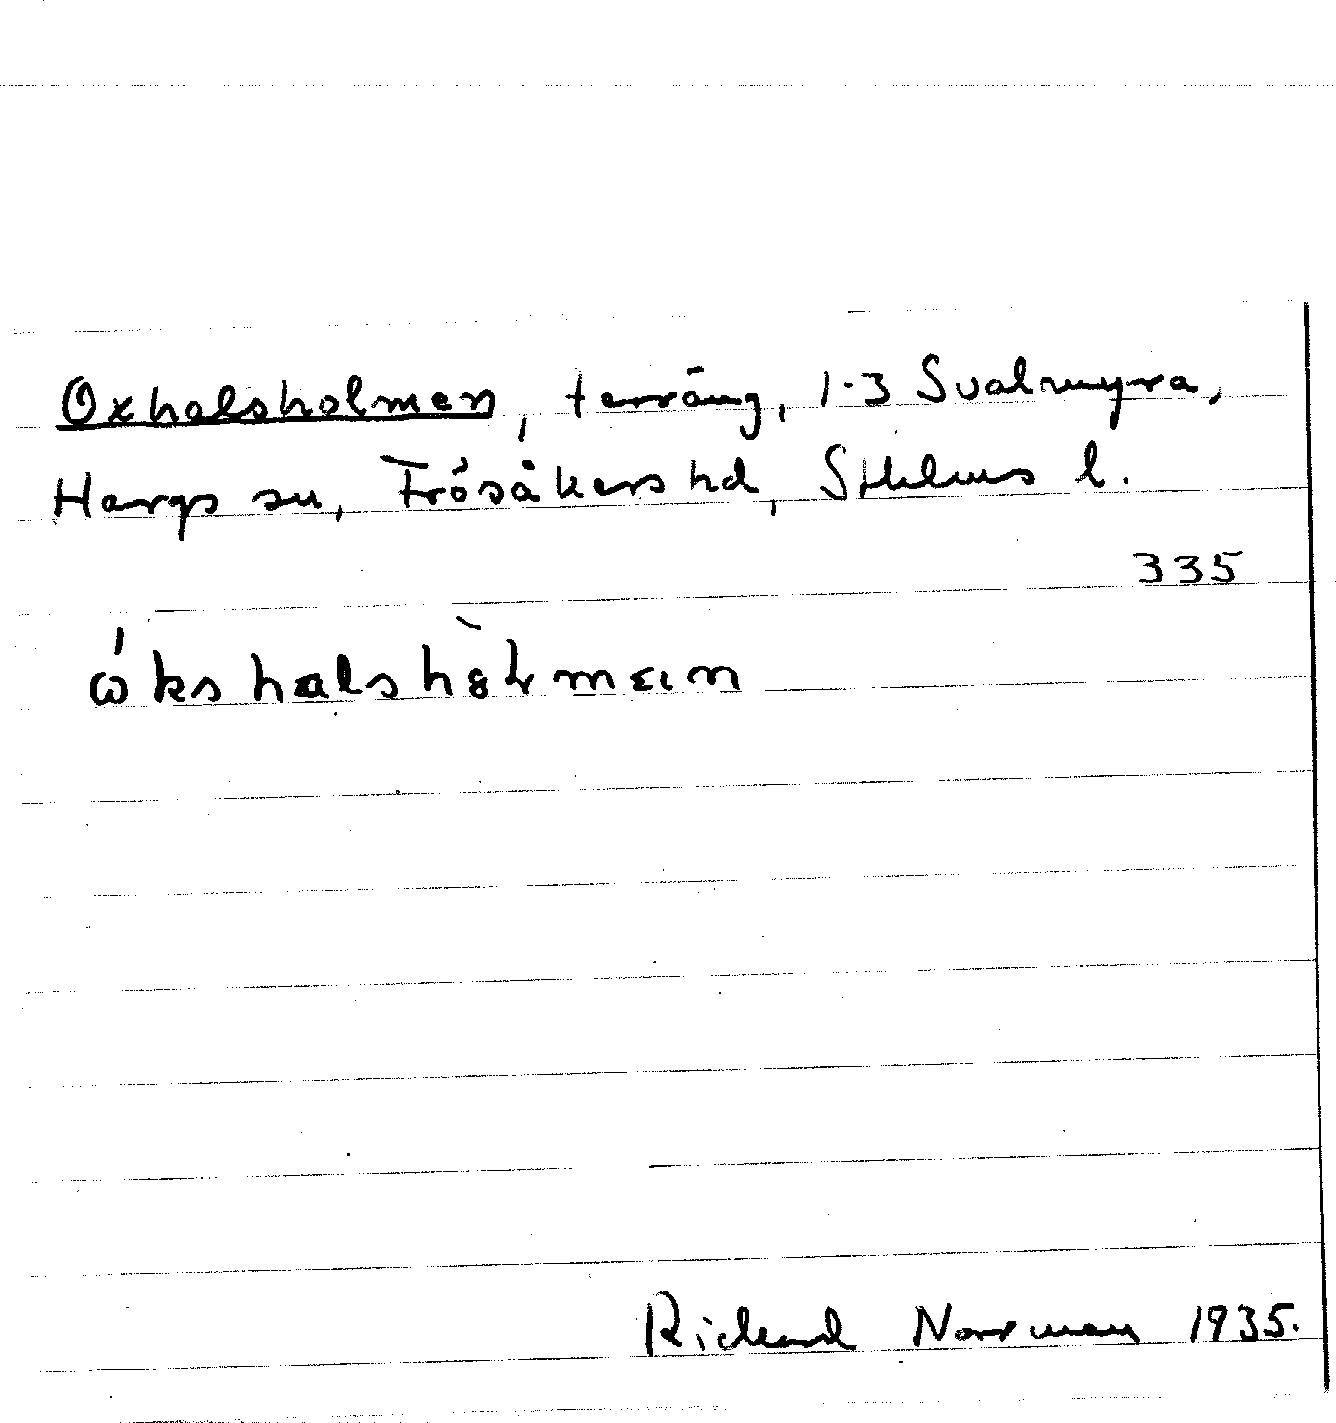 Oxhalsholmen, terräng, 1-3 Svalmyra,
Hargs sn, Frösåkers hd, Sthlms l.
335
Rickard Norrman 1935.